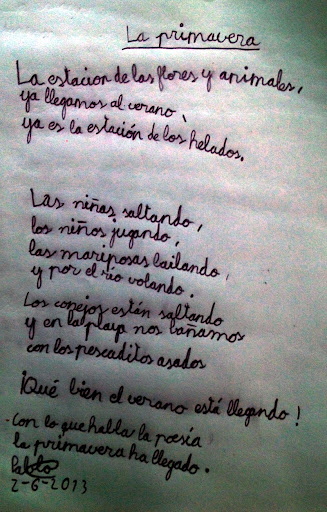 La primavera
La estacion de las flores y animales,
ya llegamos al verano,
ya es la estación de los helados.
Las niñas saltando,
los niños jugando,
las mariposas bailando,
y por el río volando.
Los conejos están saltando
y en la playa nos bañamos
con los pescaditos asados
¡Qué bien el verano está llegando!
-Con lo que habla la poesía
la primavera ha llegado.
Pablo
2-6-2013